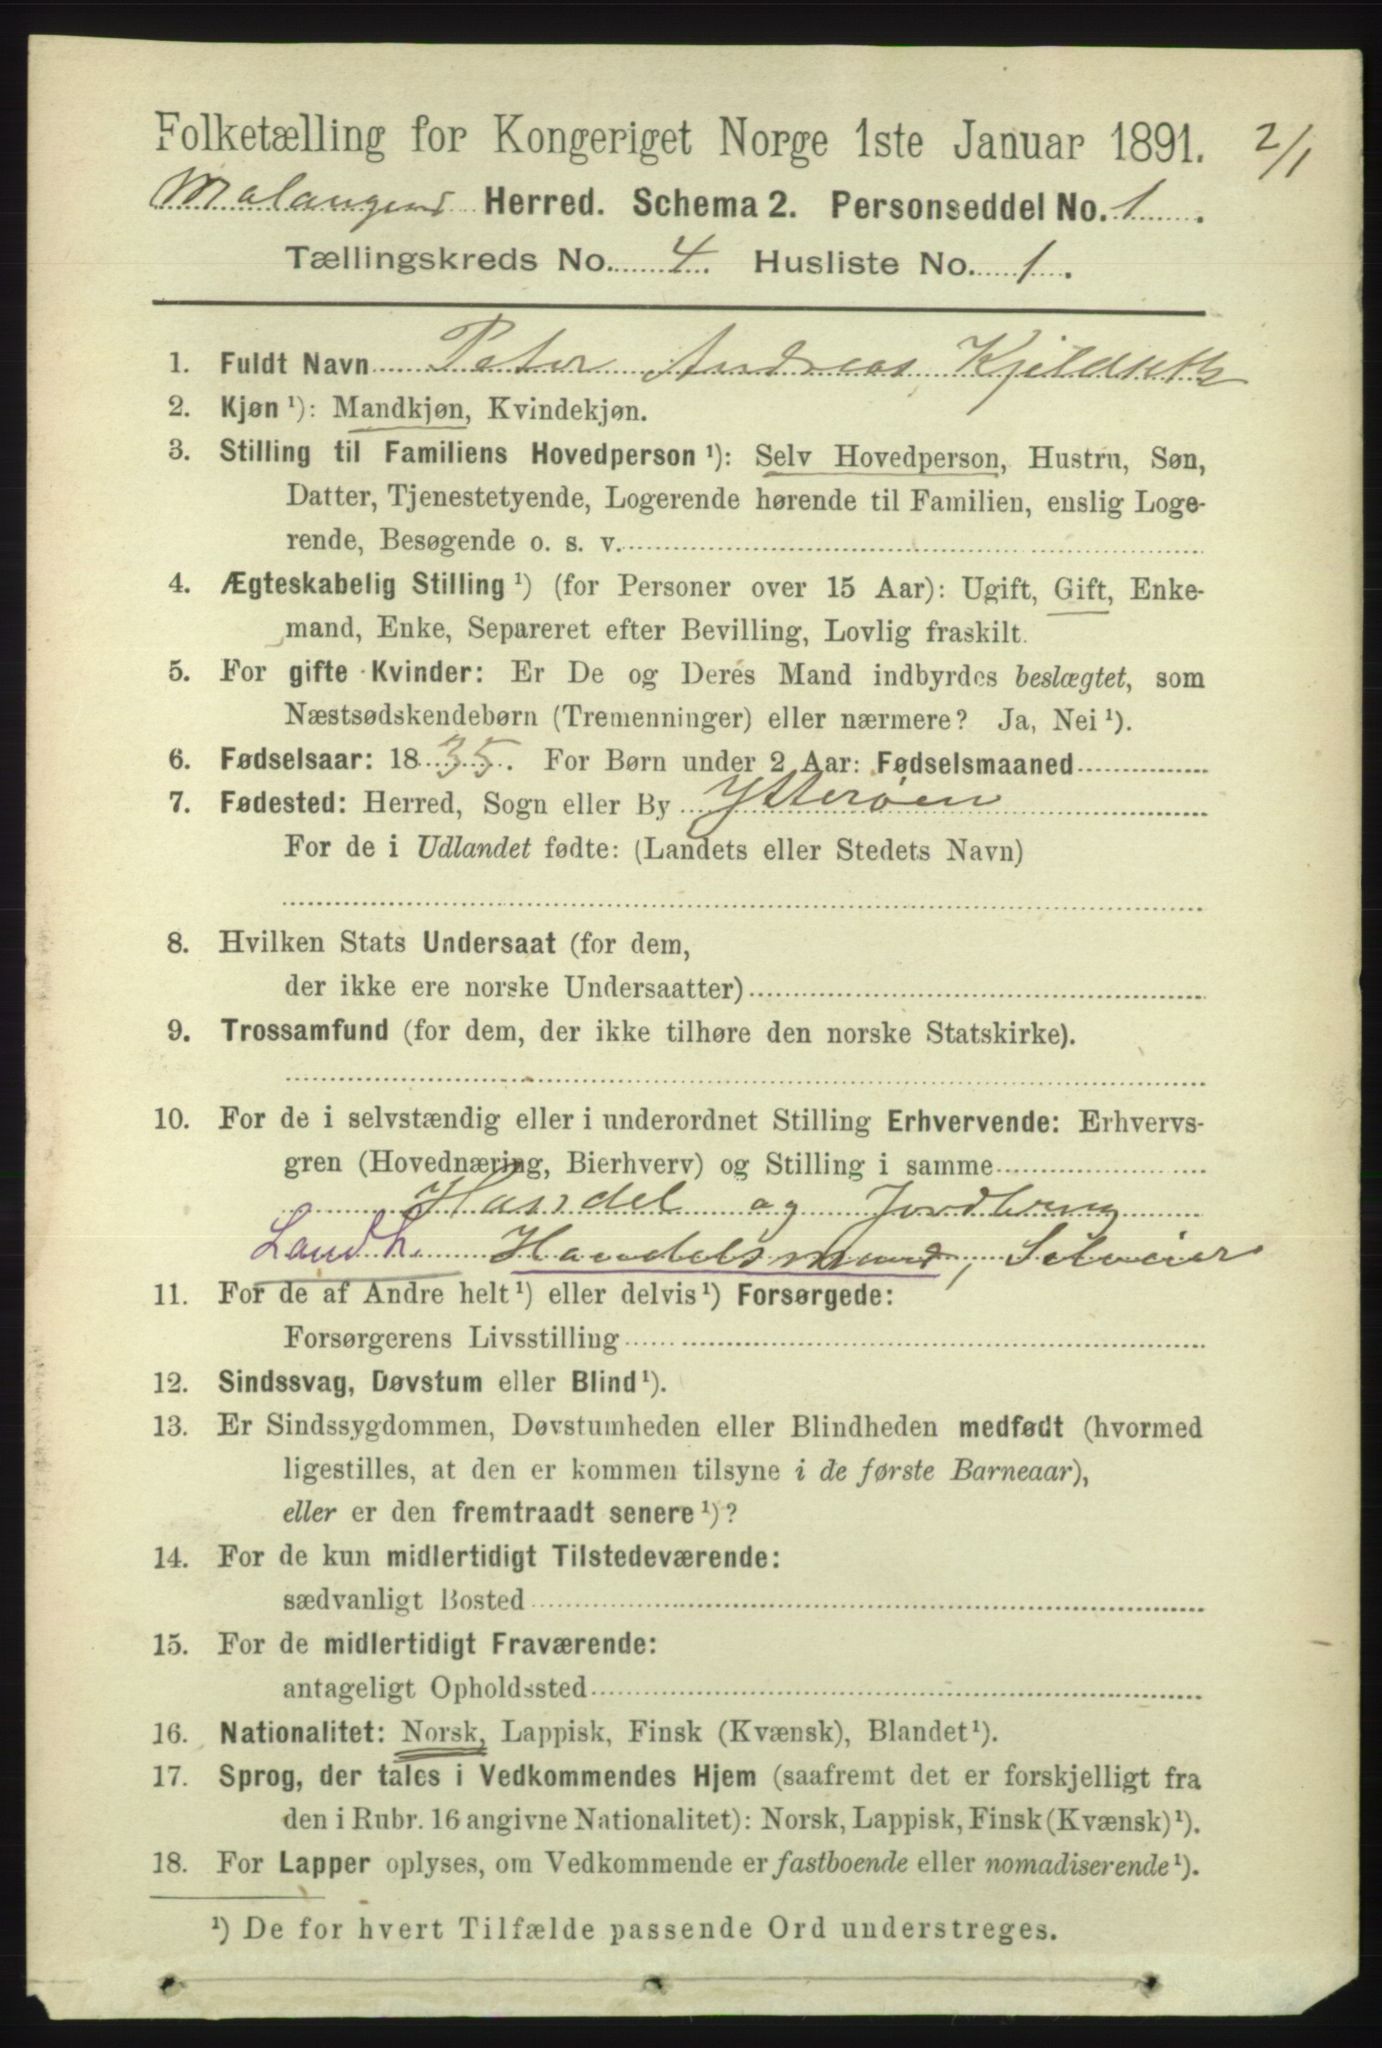 Folketælling for Kongeriget Norge 1ste Januar 1891. 2/1
Malangens Herred. Schema 2. Personseddel No. 1.
Tællingskreds No. 4. Husliste No. 1.
1. Fuldt Navn Peter Andreas Kjeldseth
2. Kjøn ¹): Mandkjøn, Kvindekjøn.
3. Stilling til Familiens Hovedperson ¹): Selv Hovedperson, Hustru, Søn,
Datter, Tjenestetyende, Logerende hørende til Familien, enslig Loge-
rende, Besøgende o. s. v.
4. Ægteskabelig Stilling ¹) (for Personer over 15 Aar): Ugift, Gift, Enke-
mand, Enke, Separeret efter Bevilling, Lovlig fraskilt.
5. For gifte Kvinder: Er De og Deres Mand indbyrdes beslægtet, som
Næstsødskendebørn (Tremenninger) eller nærmere? Ja, Nei ¹).
6. Fødselsaar: 1835. For Børn under 2 Aar: Fødselsmaaned
7. Fødested: Herred, Sogn eller By Ytterøen
For de i Udlandet fødte: (Landets eller Stedets Navn)
8. Hvilken Stats Undersaat (for dem,
der ikke ere norske Undersaatter)
9. Trossamfund (for dem, der ikke tilhøre den norske Statskirke).
10. For de i selvstændig eller i underordnet Stilling Erhvervende: Erhvervs-
gren (Hovednæring, Bierhverv) og Stilling i samme
Handel og Jordbrug
Landh. Handelsmand, Selveier
11. For de af Andre helt ¹) eller delvis ¹) Forsørgede:
Forsørgerens Livsstilling
12. Sindssvag, Døvstum eller Blind ¹).
13. Er Sindssygdommen, Døvstumheden eller Blindheden medfødt (hvormed
ligestilles, at den er kommen tilsyne i de første Barneaar),
eller er den fremtraadt senere ¹)?
14. For de kun midlertidigt Tilstedeværende:
sædvanligt Bosted
15. For de midlertidigt Fraværende:
antageligt Opholdssted
16. Nationalitet: Norsk, Lappisk, Finsk (Kvænsk), Blandet ¹).
17. Sprog, der tales i Vedkommendes Hjem (saafremt det er forskjelligt fra
den i Rubr. 16 angivne Nationalitet): Norsk, Lappisk, Finsk (Kvænsk) ¹).
18. For Lapper oplyses, om Vedkommende er fastboende eller nomadiserende ¹).
¹) De for hvert Tilfælde passende Ord understreges.